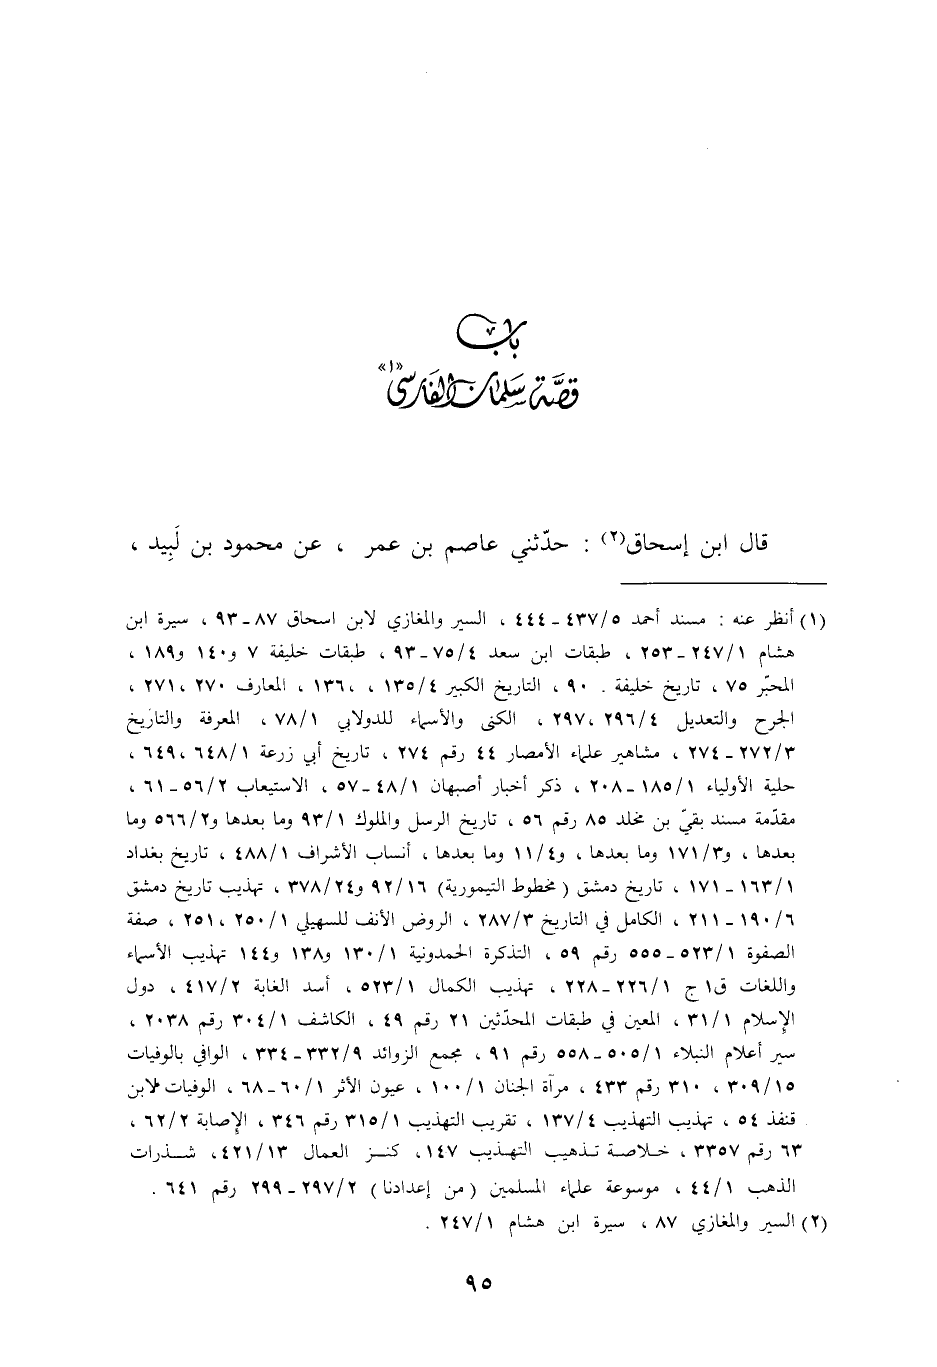 باب
قصّة سلمان الفارسي «١»
قال ابن إسحاق(٢) : حدّثني عاصم بن عمر ، عن محمود بن لَبِيد ،
(١) أنظر عنه : مسند أحمد ٤٣٧/٥ ـ ٤٤٤ ، السير والمغازي لابن اسحاق ٨٧ ـ ٩٣ ، سيرة ابن
هشام ٢٤٧/١ ـ ٢٥٣ ، طبقات ابن سعد ٧٥/٤ ـ ٩٣ ، طبقات خليفة ٧ و١٤٠ و١٨٩ ،
المحبّر ٧٥ ، تاريخ خليفة . ٩٠ ، التاريخ الكبير ١٣٥/٤ ، ،١٣٦ ، المعارف ٢٧٠ ،٢٧١ ،
الجرح والتعديل ٢٩٦/٤ ،٢٩٧ ، الكنى والأسماء للدولابي ٧٨/١ ، المعرفة والتاريخ
٢٧٢/٣ ـ ٢٧٤ ، مشاهير علماء الأمصار ٤٤ رقم ٢٧٤ ، تاريخ أبي زرعة ٦٤٨/١ ،٦٤٩ ،
حلية الأولياء ١٨٥/١ ـ ٢٠٨ ، ذكر أخبار أصبهان ٤٨/١ ـ ٥٧ ، الاستيعاب ٥٦/٢ ـ ٦١ ،
مقدّمة مسند بقيّ بن مخلد ٨٥ رقم ٥٦ ، تاريخ الرسل والملوك ٩٣/١ وما بعدها و٥٦٦/٢ وما
بعدها ، و١٧١/٣ وما بعدها ، و١١/٤ وما بعدها ، أنساب الأشراف ٤٨٨/١ ، تاريخ بغداد
١٦٣/١ ـ ١٧١ ، تاريخ دمشق ( مخطوط التيمورية ) ٩٢/١٦ و٣٧٨/٢٤ ، تهذيب تاريخ دمشق
١٩٠/٦ ـ ٢١١ ، الكامل في التاريخ ٢٨٧/٣ ، الروض الأنف للسهيلي ٢٥٠/١ ، ٢٥١ ، صفة
الصفوة ٥٢٣/١ ـ ٥٥٥ رقم ٥٩ ، التذكرة الحمدونية ١٣٠/١ و١٣٨ و١٤٤ تهذيب الأسماء
واللغات ق١ ج ٢٢٦/١ ـ ٢٢٨ ، تهذيب الكمال ٥٢٣/١ ، أسد الغابة ٤١٧/٢ ، دول
الإسلام ٣١/١ ، المعين في طبقات المحدّثين ٢١ رقم ٤٩ ، الكاشف ٣٠٤/١ رقم ٢٠٣٨ ،
سير أعلام النبلاء ٥٠٥/١ ـ ٥٥٨ رقم ٩١ ، مجمع الزوائد ٣٣٢/٩ ـ ٣٣٤ ، الوافي بالوفيات
٣٠٩/١٥ ، ٣١٠ رقم ٤٣٣ ، مرآة الجنان ١٠٠/١ ، عيون الأثر ٦٠/١ ـ ٦٨ ، الوفيات لابن
قنفذ ٥٤ ، تهذيب التهذيب ١٣٧/٤ ، تقريب التهذيب ٣١٥/١ رقم ٣٤٦ ، الإصابة ٦٢/٢ ،
٦٣ رقم ٣٣٥٧ ، خلاصة تذهيب التهذيب ١٤٧ ، كنز العمال ٤٢١/١٣ ، شذرات
الذهب ٤٤/١ ، موسوعة علماء المسلمين ( من إعدادنا ) ٢٩٧/٢ ـ ٢٩٩ رقم ٦٤١ .
(٢) السير والمغازي ٨٧ ، سيرة ابن هشام ٢٤٧/١ .
٩٥